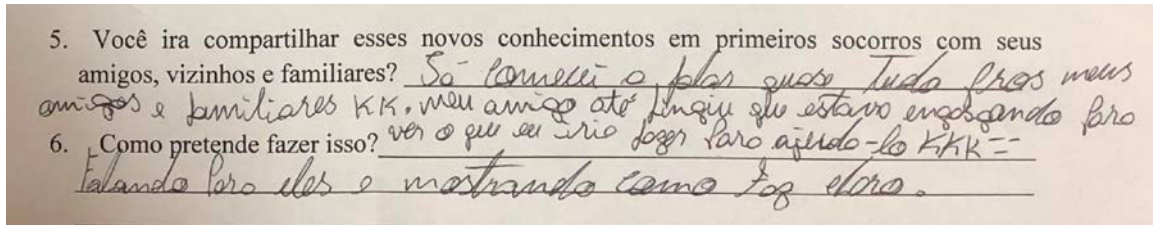 5. Você ira compartilhar esses novos conhecimentos em primeiros socorros com seus
amigos, vizinhos e familiares? Já comecei a falar quase Tudo Pros meus
amigos e familiares KK, meu amigo até fingiu que estava engasgando Para
6. Como pretende fazer isso? ver o que eu iria fazer Para ajuda-lo KKK
falando Para eles e mostrando como faz claro.